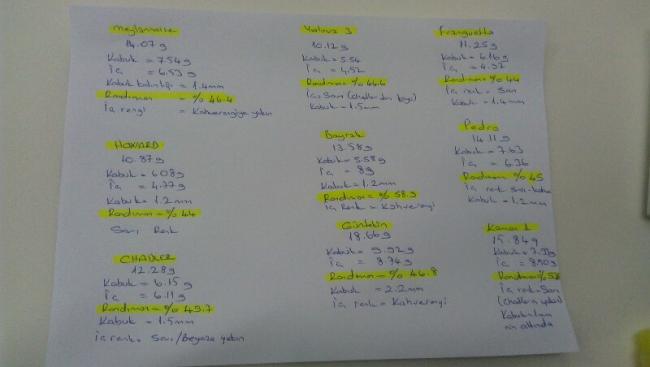 Maylannaise
14.07g
Kabuk = 7.54g
İç = 6.53g
Kabuk kalınlığı = 1.4mm
Randıman = % 46.4
İç rengi = Kahverengiye yakın
HOWARD
10.87g
Kabuk = 6.08g
İç = 4.77g
Kabuk = 1.2mm
Randıman = % 44
Sarı Renk
CHADLER
12.28g
Kabuk = 6.15g
İç = 6.11g
Randıman = % 49.7
Kabuk = 1.5mm
İç renk = Sarı/Beyaza yakın
Yalova 3
10.12g
Kabuk = 5.54
İç = 4.52
Randıman = %
İç = Sarı
Kabuk = 1.5mm
Bayrak
13.58g
Kabuk = 5.58g
İç = 8g
Kabuk = 1.2mm
Randıman = % 58.9
İç Renk = Kahverengi
Gültekin
18.66g
Kabuk = 9.92g
İç = 8.74g
Randıman = % 46.8
Kabuk = 2.2mm
İç renk = Kahverengi
Franquette
11.25g
Kabuk = 6.16g
İç =
Randıman = % 44
İç renk = Sarı
Kabuk = 1.4mm
Pedro
14.11g
Kabuk = 7.63
İç = 6.36
Randıman % 45
İç renk Sarı-
Kabuk = 1.2mm
Kaman 1
15.84g
Kabuk =
İç = 8.50g
Randıman %
İç renk = Sarı
(Chadlera yakın)
altında